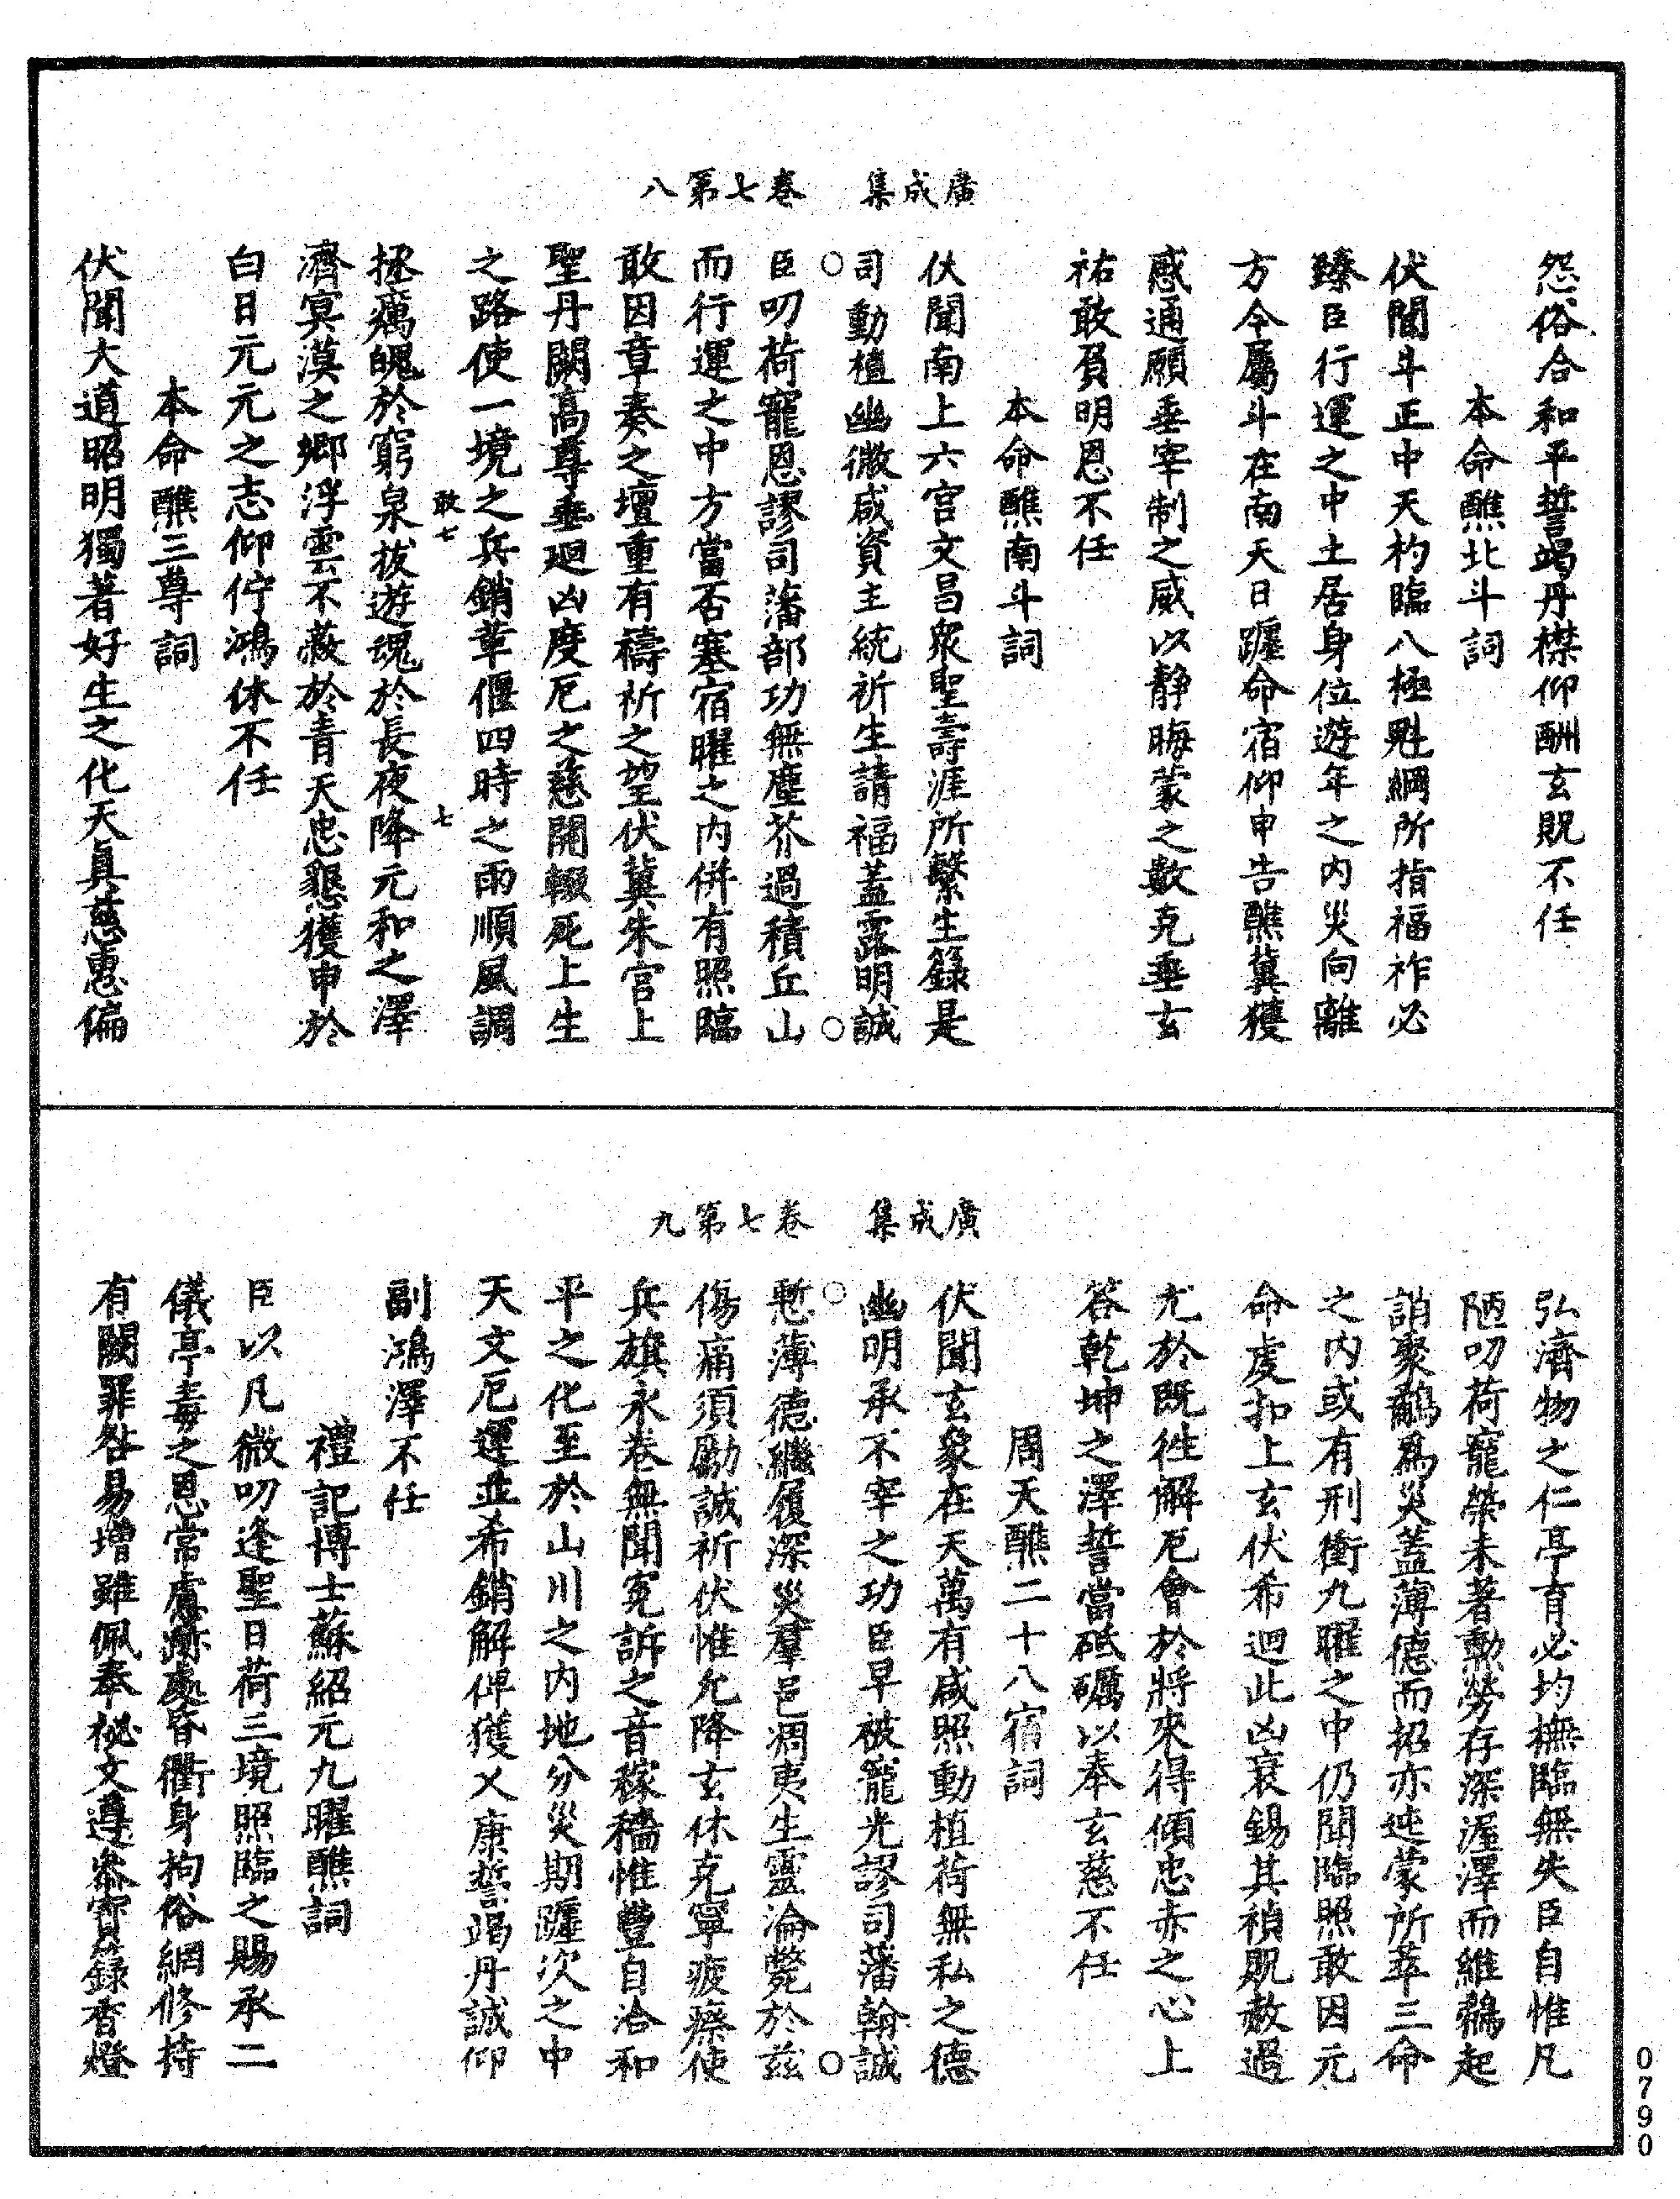 廣成集　卷七第八
怨俗合和平誓竭丹襟仰酬玄貺不任
本命醮北斗詞
伏聞斗正中天杓臨八極魁綱所指福祚必
臻臣行運之中土居身位遊年之內災向離
方今屬斗在南天日躔命宿仰申告醮冀獲
感通願垂宰制之威以靜晦蒙之數克垂玄
祐敢負明恩不任
本命醮南斗詞
伏聞南上六宮文昌衆聖壽涯所繫生錄是
司動植幽微咸資主統祈生請福蓋露明誠
臣叨荷寵恩謬司藩部功無塵芥過積丘山
而行運之中方當否塞宿曜之內併有照臨
敢因章奏之壇重有禱祈之望伏冀朱宮上
聖丹闕高尊垂迴凶度厄之慈開輟死上生
之路使一境之兵銷革偃四時之雨順風調
敢七　七
拯癘魄於窮泉拔遊魂於長夜降元和之澤
濟冥漠之鄉浮雲不蔽於青天忠懇獲申於
白日元元之志仰佇鴻休不任
本命醮三尊詞
伏聞大道昭明獨著好生之化天真慈惠偏
廣成集　卷七第九
弘濟物之仁亭育必均撫臨無失臣自惟凡
陋叨荷寵榮未著勳勞存深渥澤而維鵜起
誚聚鷸爲災蓋薄德而招亦迍蒙所萃三命
之內或有刑衝九曜之中仍聞臨照敢因元
命虔扣上玄伏希迴此凶衰錫其禎貺赦過
尤於既往解厄會於將來得傾忠赤之心上
答乾坤之澤誓當砥礪以奉玄慈不任
周天醮二十八宿詞
伏聞玄象在天萬有咸照動植荷無私之德
幽明承不宰之功臣早被寵光謬司藩翰誠
慙薄德繼履深災羣邑凋夷生靈淪斃於茲
傷痛須勵誠祈伏惟允降玄休克寧疲瘵使
兵旗永卷無聞冤訴之音稼穡惟豐自洽和
平之化至於山川之內地分災期躔次之中
天文厄運並希銷解俾獲乂康誓竭丹誠仰
副鴻澤不任
禮記博士蘇紹元九曜醮詞
臣以凡微叨逢聖日荷三境照臨之賜承二
儀亭毒之恩常慮跡處昏衢身拘俗網修持
有闕罪咎易增雖佩奉祕文遵忝寶籙香燈
0790